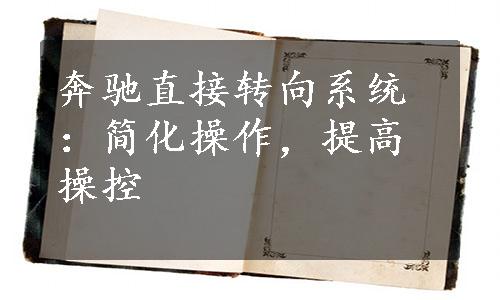 奔驰直接转向系统
：简化操作，提高
操控